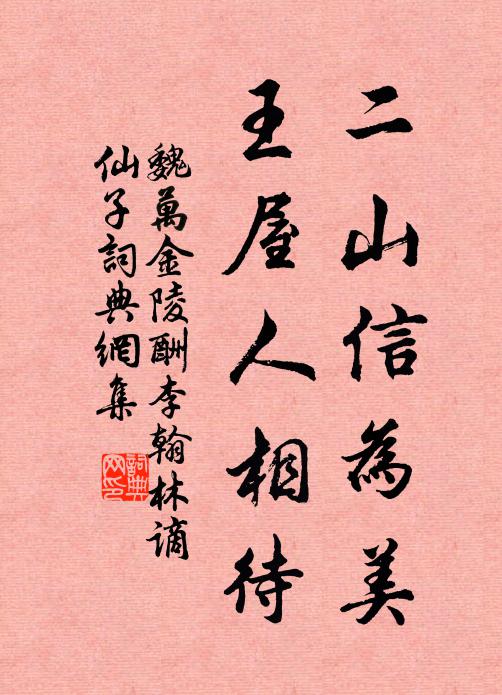 二山信為美
王屋人相待
魏萬金陵酬李翰林謫
仙子詞典網集
詞典網印